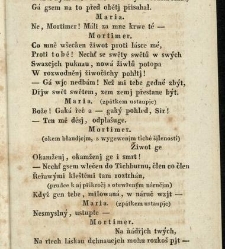 Gá gsem na to před obětj přísahal.
Maria.
Ne, Mortimer! Máli za mne krwe té —
Mortimer.
Co mně wšecken žiwot proti lásce mé,
Proti tobě! Nechť se swěty swětů w swých
Swazcjch pukmau, nowá žiwlů potopa
W rozwodněnj žiwočichy pohltj!
— Gá wjc nedbám! Než mi tebe gedně zbýt,
Dijw swět swětem, sem zemj přestane být.
Maria. (zpátkem ustaupjc)
Bože! Gaká řeč a — gaký pohled, Sir!
— Ten mě děsj, odplašuge.
Mortimer.
(okem blaudjcjm, s wygewenjm tiché šjlenosti)
Žiwot ge
Okamženj, okamženj ge i smrt!
— Nechť gsem wlečen do Tichburnu, člen co člen
Řeřawými kleštěmi tam roztrhán,
(prudce k nj přikročj s otewřeným náručjm)
Když gen tebe, milowaná, w náruč wzjt —
Maria. (zpátkem ustaupjc)
Nesmyslný, ustupte —
Mortimer.
Na ňádrjch twých,
Na těch láskau dejmaucjch mohu rozkoš pjt —